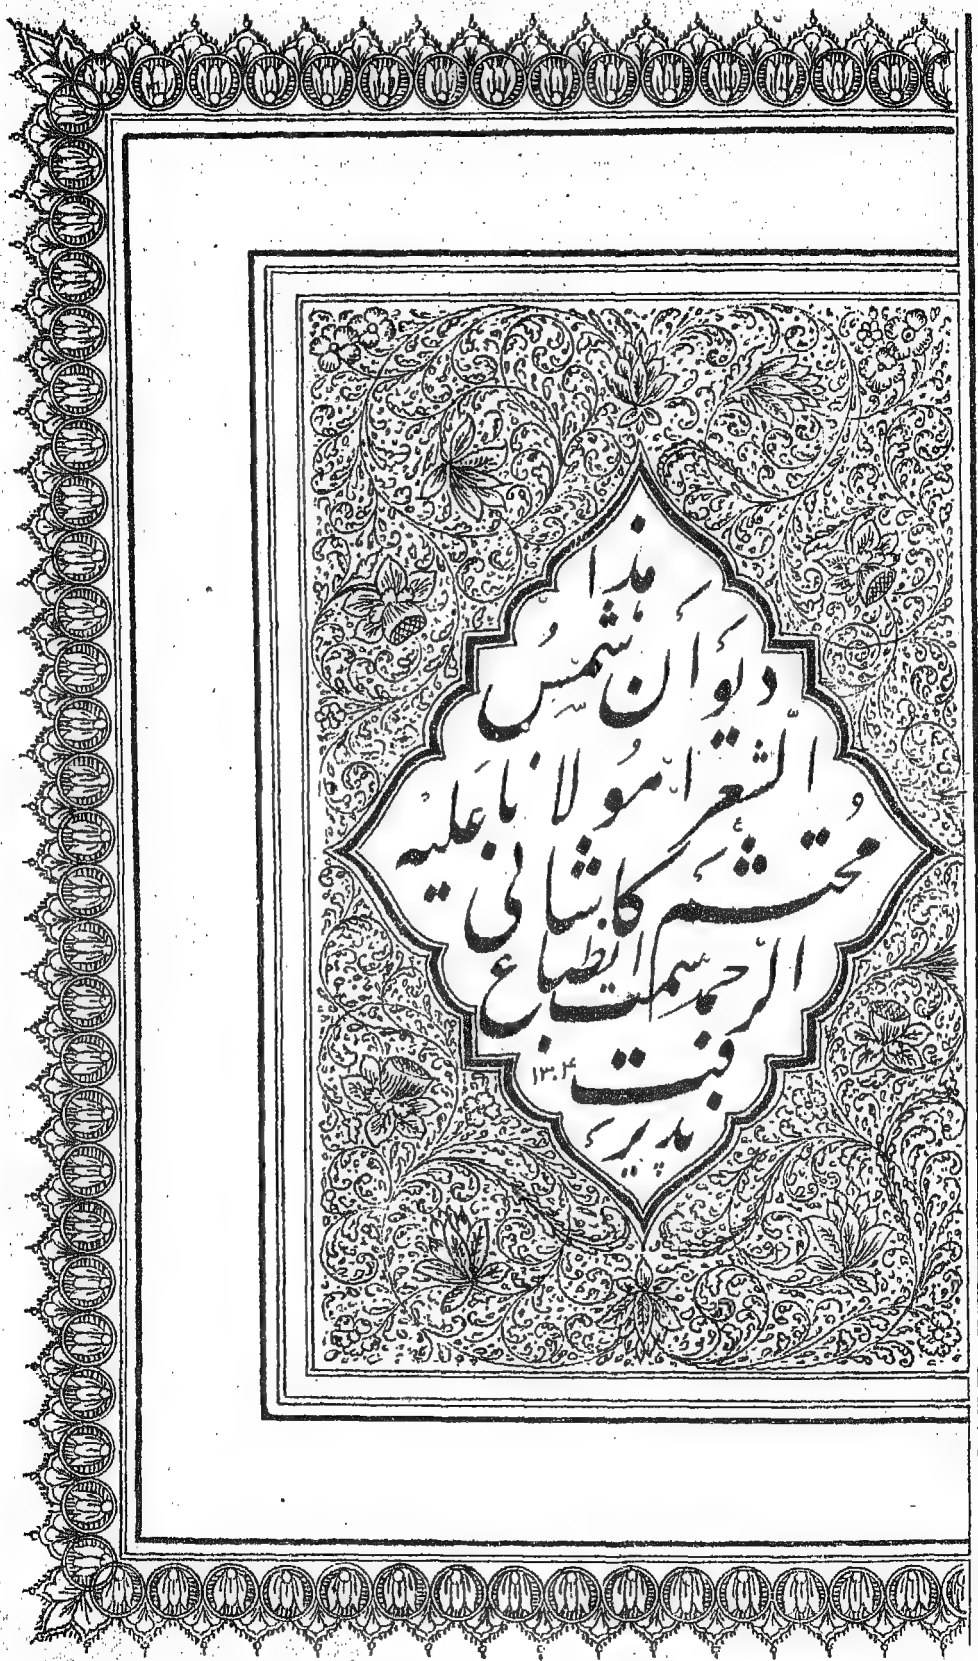 هذا
دیوان شمس
الشعرا مولانا
محتشم کاشانی علیه
الرحمه سمت انطباع
پذیرفت
۱۳۰۴